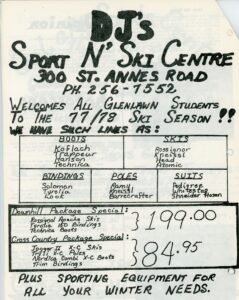 DJ's
SPORT N' SKI CENTRE
300 ST. ANNES ROAD
PH. 256-7552
WELCOMES ALL GLENLAWN STUDENTS
TO THE 77/78 SKI SEASON !!
WE HAVE SUCH LINES AS:
BOOTS SKIS
Koflach Rossignol
Trappeur Kneissl
Hanson Head
Technica Atomic
BINDINGS POLES SUITS
Salomon Ramy Pedigree
Tyrolia Kneissl White Stag
Look Barrecrafter Shneider Hosen
Downhill Package Special:
Rossignol Apache Skis
Tyrolia 150 Bindings
Technica Boots
199.00
Cross Country Package Special:
X-C Skis
X-C Poles
X-C Boots
Bindings
84.95
PLUS SPORTING EQUIPMENT FOR
ALL YOUR WINTER NEEDS.